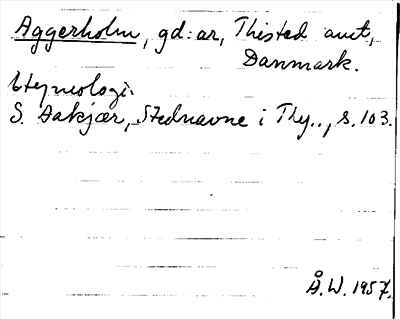 Aggerholm, gd:ar, Thisted amt,
Danmark.
Etymologi.
S. Aakjær, Stednavne i Thy.., s. 103.
Å.W. 1957.